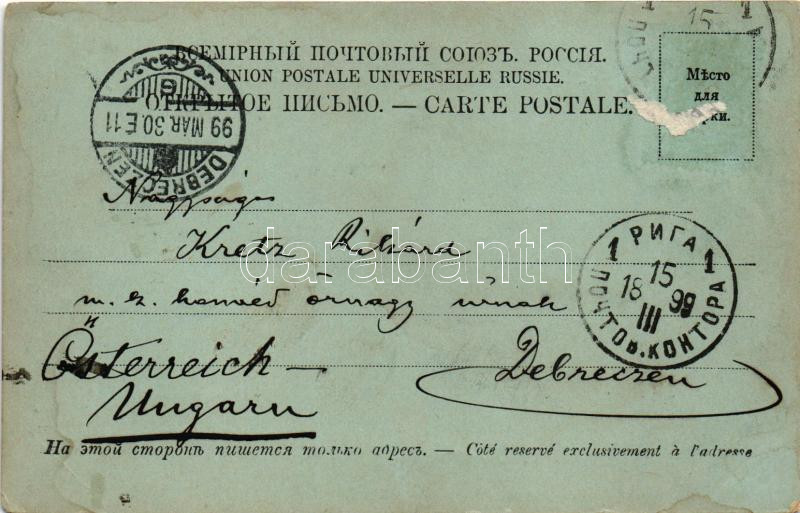 ВСЕМІРНЫЙ ПОЧТОВЫЙ СОЮЗЪ. РОССІЯ.
UNION POSTALE UNIVERSELLE RUSSIE.
ОТКРЫТОЕ ПИСЬМО. — CARTE POSTALE.
Мѣсто
для
рки.
1 15 1
ПОЧТ
99 MAR. 30. E. 11
DEBRECZEN
Nagyságos
Kretz Rikárd
m. k. honvéd őrnagy úrnak
Österreich —
Ungarn
Debreczen
1 РИГА 1
15
18 99
III
ПОЧТОВ. КОНТОРА
darabanth
На этой сторонѣ пишется только адресъ. — Côté reservé exclusivement à l'adresse